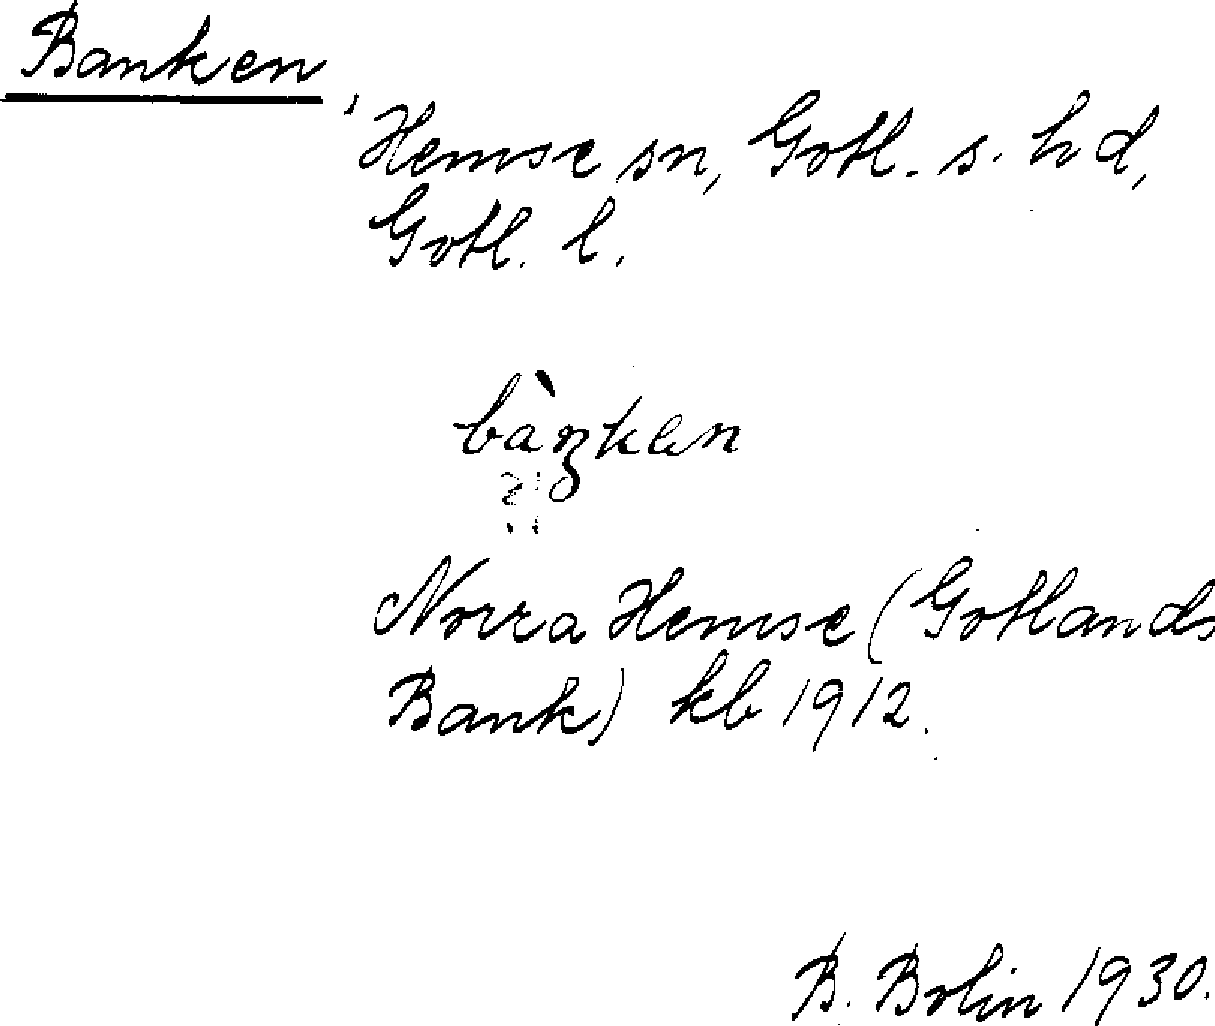 Banken,
Hemse sn, Gotl. s. hd,
Gotl. l.
bàŋken
Norra Hemse (Gotlands
Bank) kb 1912.
B. Bolin 1930.